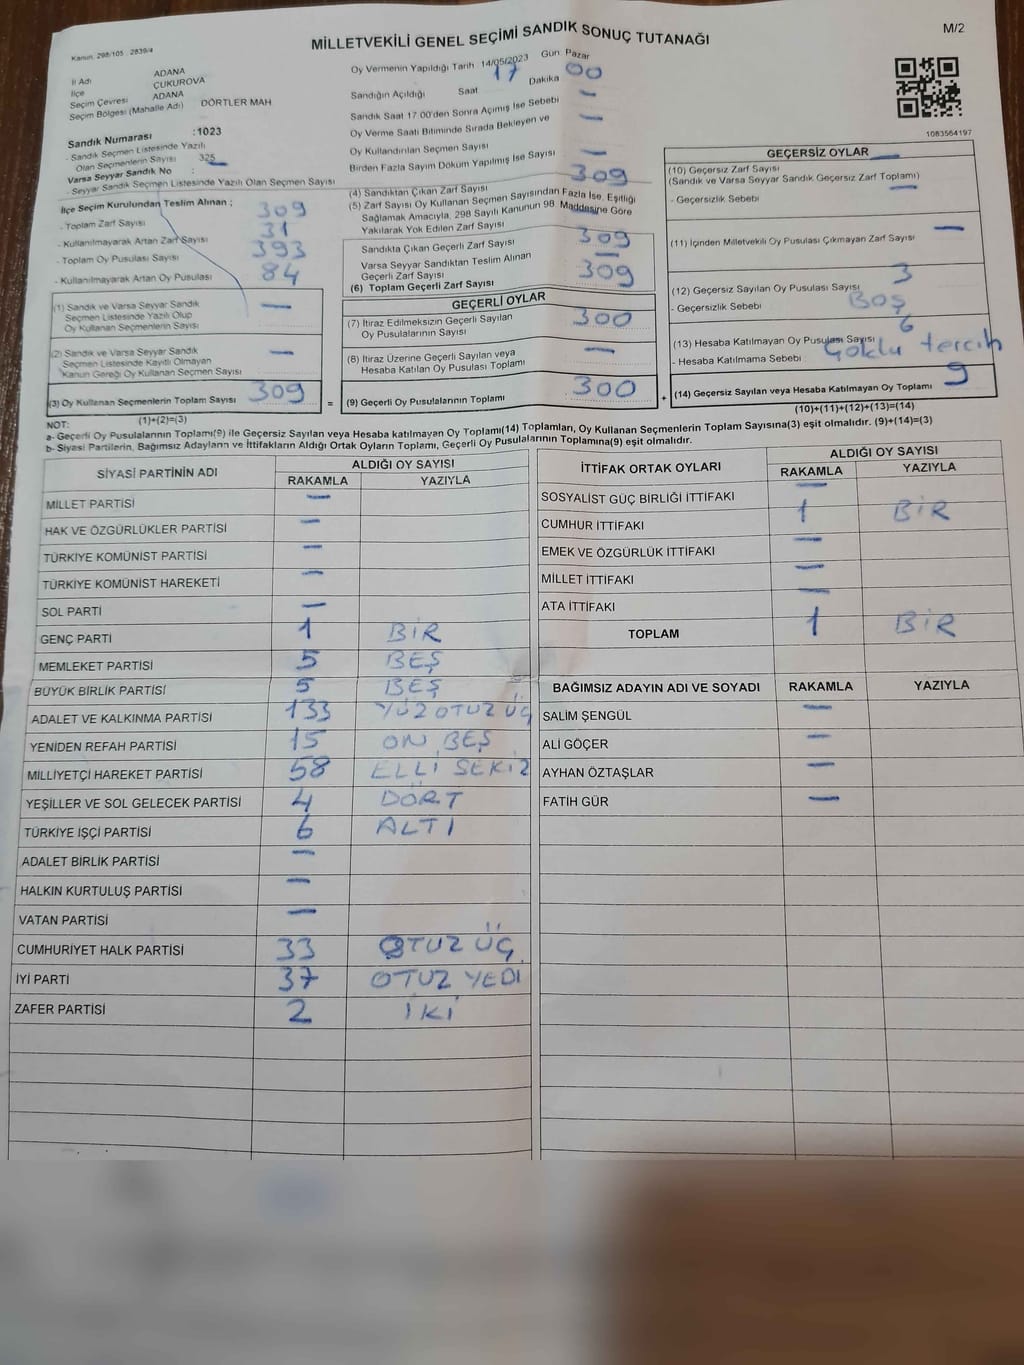 Kanun. 298/105 2839/4
MİLLETVEKİLİ GENEL SEÇİMİ SANDIK SONUÇ TUTANAĞI
M/2
İl Adı ADANA
İlçe ÇUKUROVA
Seçim Çevresi ADANA
Seçim Bölgesi (Mahalle Adı) DÖRTLER MAH
Sandık Numarası :1023
- Sandık Seçmen Listesinde Yazılı
Olan Seçmenlerin Sayısı 325
Varsa Seyyar Sandık No :
- Seyyar Sandık Seçmen Listesinde Yazılı Olan Seçmen Sayısı
İlçe Seçim Kurulundan Teslim Alınan ;
- Toplam Zarf Sayısı 309
- Kullanılmayarak Artan Zarf Sayısı 31
- Toplam Oy Pusulası Sayısı 393
- Kullanılmayarak Artan Oy Pusulası 84
(1) Sandık ve Varsa Seyyar Sandık
Seçmen Listesinde Yazılı Olup
Oy Kullanan Seçmenlerin Sayısı —
(2) Sandık ve Varsa Seyyar Sandık
Seçmen Listesinde Kayıtlı Olmayan
Kanun Gereği Oy Kullanan Seçmen Sayısı —
(3) Oy Kullanan Seçmenlerin Toplam Sayısı 309 =
(1)+(2)=(3)
Oy Vermenin Yapıldığı Tarih 14/05/2023 Gün Pazar
Sandığın Açıldığı Saat 17 Dakika 00
Sandık Saat 17.00'den Sonra Açımış İse Sebebi —
Oy Verme Saati Bitiminde Sırada Bekleyen ve
Oy Kullandırılan Seçmen Sayısı —
Birden Fazla Sayım Döküm Yapılmış İse Sayısı —
(4) Sandıktan Çıkan Zarf Sayısı 309
(5) Zarf Sayısı Oy Kullanan Seçmen Sayısından Fazla İse, Eşitliği
Sağlamak Amacıyla, 298 Sayılı Kanunun 98. Maddesine Göre
Yakılarak Yok Edilen Zarf Sayısı —
Sandıkta Çıkan Geçerli Zarf Sayısı 309
Varsa Seyyar Sandıktan Teslim Alınan
Geçerli Zarf Sayısı —
(6) Toplam Geçerli Zarf Sayısı 309
GEÇERLİ OYLAR
(7) İtiraz Edilmeksizin Geçerli Sayılan
Oy Pusulalarının Sayısı 300
(8) İtiraz Üzerine Geçerli Sayılan veya
Hesaba Katılan Oy Pusulası Toplamı —
(9) Geçerli Oy Pusulalarının Toplamı 300 +
1083564197
GEÇERSİZ OYLAR
(10) Geçersiz Zarf Sayısı —
(Sandık ve Varsa Seyyar Sandık Geçersiz Zarf Toplamı)
- Geçersizlik Sebebi —
(11) İçinden Milletvekili Oy Pusulası Çıkmayan Zarf Sayısı —
(12) Geçersiz Sayılan Oy Pusulası Sayısı 3
- Geçersizlik Sebebi BOŞ
(13) Hesaba Katılmayan Oy Pusulası Sayısı 6
- Hesaba Katılmama Sebebi Çoklu tercih
(14) Geçersiz Sayılan veya Hesaba Katılmayan Oy Toplamı 9
(10)+(11)+(12)+(13)=(14)
NOT:
a- Geçerli Oy Pusulalarının Toplamı(9) ile Geçersiz Sayılan veya Hesaba katılmayan Oy Toplamı(14) Toplamları, Oy Kullanan Seçmenlerin Toplam Sayısına(3) eşit olmalıdır. (9)+(14)=(3)
b- Siyasi Partilerin, Bağımsız Adayların ve İttifakların Aldığı Ortak Oyların Toplamı, Geçerli Oy Pusulalarının Toplamına(9) eşit olmalıdır.
SİYASİ PARTİNİN ADI ALDIĞI OY SAYISI
RAKAMLA YAZIYLA
MİLLET PARTİSİ —
HAK VE ÖZGÜRLÜKLER PARTİSİ —
TÜRKİYE KOMÜNİST PARTİSİ —
TÜRKİYE KOMÜNİST HAREKETİ —
SOL PARTİ —
GENÇ PARTİ 1 BİR
MEMLEKET PARTİSİ 5 BEŞ
BÜYÜK BİRLİK PARTİSİ 5 BEŞ
ADALET VE KALKINMA PARTİSİ 133 YÜZ OTUZ ÜÇ
YENİDEN REFAH PARTİSİ 15 ON BEŞ
MİLLİYETÇİ HAREKET PARTİSİ 58 ELLİ SEKİZ
YEŞİLLER VE SOL GELECEK PARTİSİ 4 DÖRT
TÜRKİYE İŞÇİ PARTİSİ 6 ALTI
ADALET BİRLİK PARTİSİ —
HALKIN KURTULUŞ PARTİSİ —
VATAN PARTİSİ —
CUMHURİYET HALK PARTİSİ 33 OTUZ ÜÇ
İYİ PARTİ 37 OTUZ YEDİ
ZAFER PARTİSİ 2 İKİ
İTTİFAK ORTAK OYLARI ALDIĞI OY SAYISI
RAKAMLA YAZIYLA
SOSYALİST GÜÇ BİRLİĞİ İTTİFAKI —
CUMHUR İTTİFAKI 1 BİR
EMEK VE ÖZGÜRLÜK İTTİFAKI —
MİLLET İTTİFAKI —
ATA İTTİFAKI —
TOPLAM 1 BİR
BAĞIMSIZ ADAYIN ADI VE SOYADI RAKAMLA YAZIYLA
SALİM ŞENGÜL —
ALİ GÖÇER —
AYHAN ÖZTAŞLAR —
FATİH GÜR —